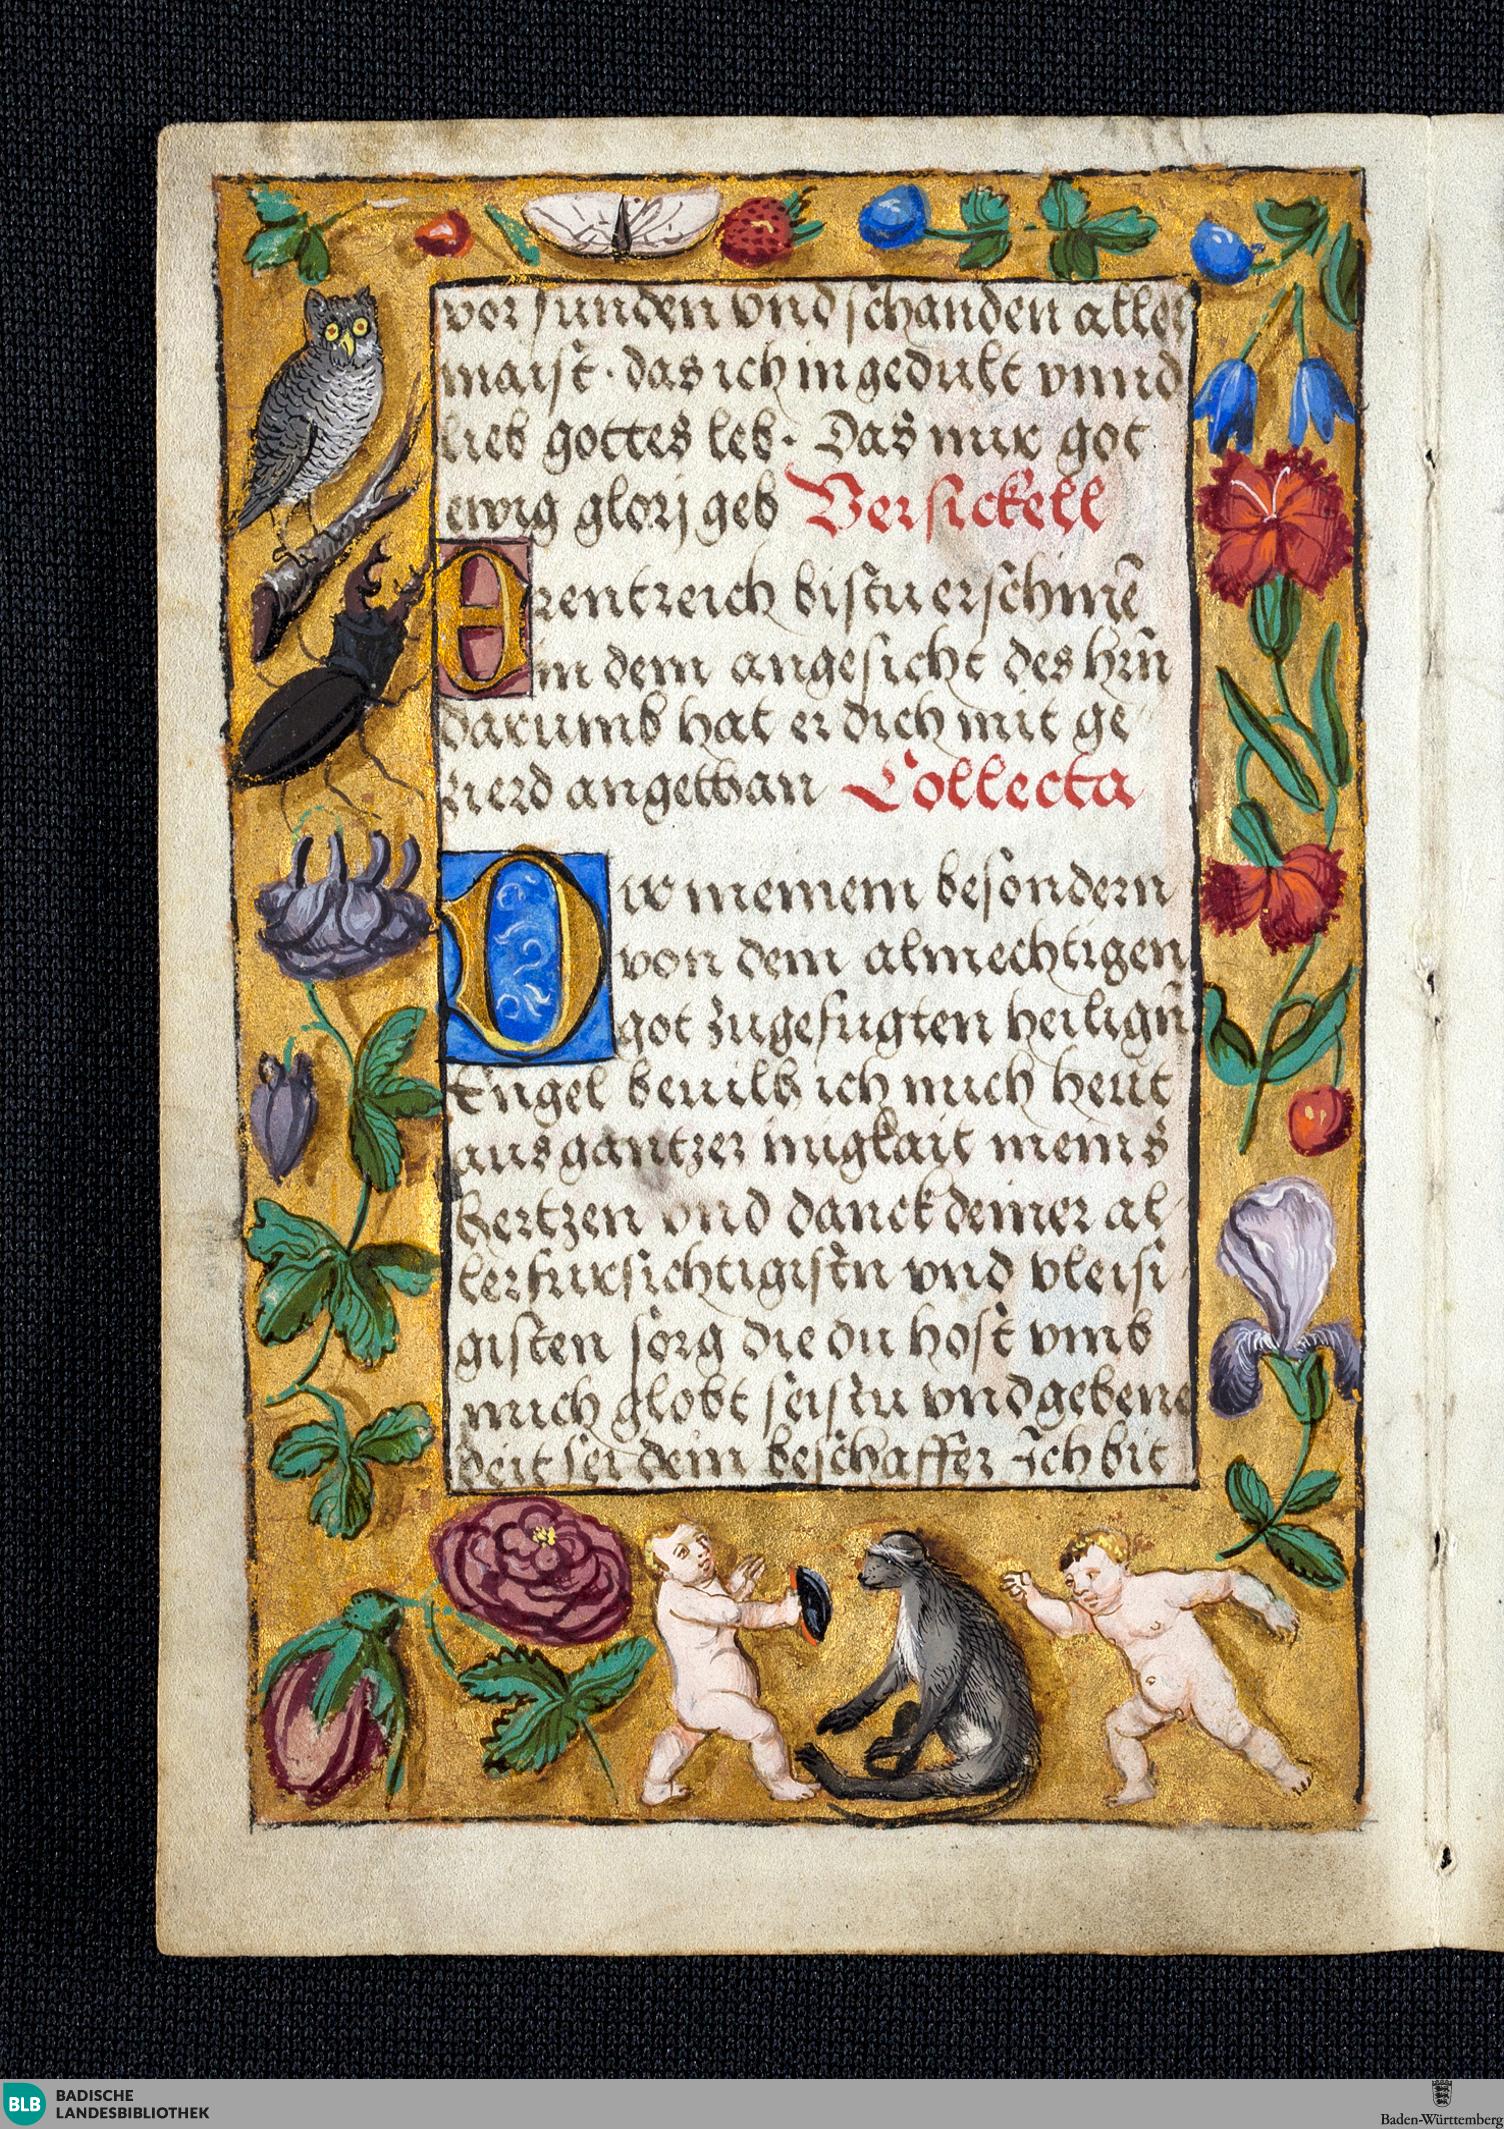 vor sunden vnd schanden aller
maist · das ich in gedult vnnd
lieb gottes leb · Das mir got
ewig glorj geb Versickell
Erentreich bistu erschinē
in dem angesicht des hrn̄
darumb hat er dich mit ge
zierd angethan Collecta
Dir meinem besondern
von dem almechtigen
got zugefugten heilign̄
Engel beuilh ich mich heut
aus gantzer inigkait meins
hertzen vnd danck deiner al
lerfursichtigistn vnd vleisi
gisten sorg die du host vmb
mich globt seistu vnd gebene
deit sei dein beschaffer Ich bit
BLB BADISCHE
LANDESBIBLIOTHEK
Baden-Württemberg